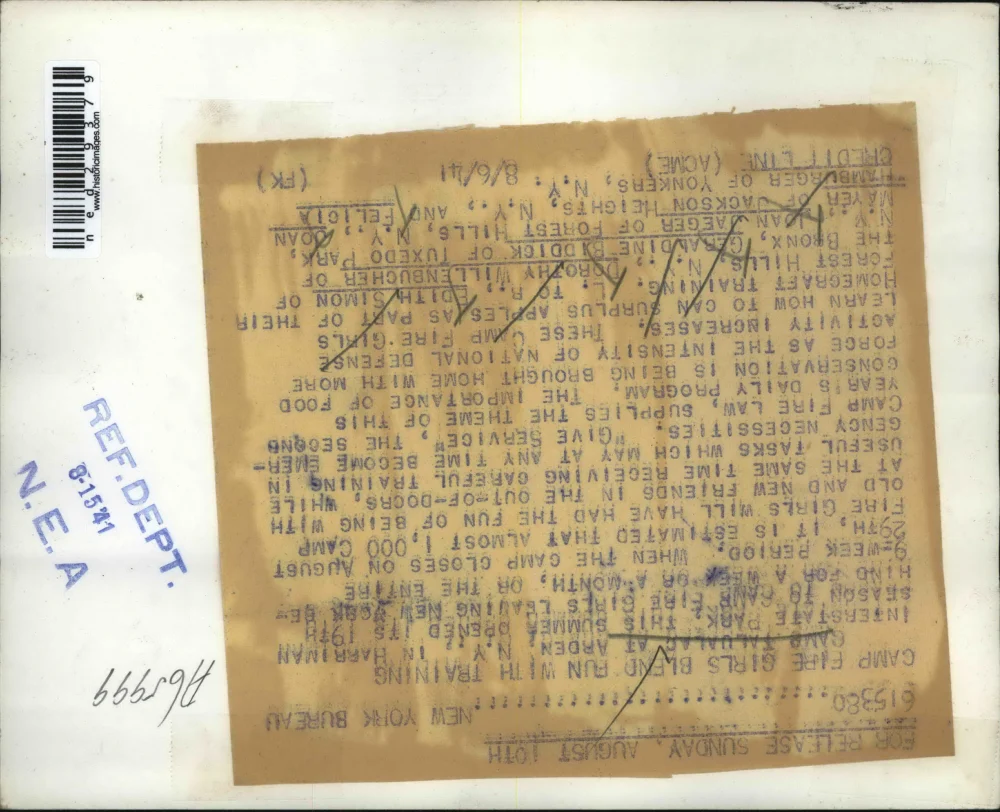 FOR RELEASE SUNDAY, AUGUST 10TH
615380
NEW YORK BUREAU
CAMP FIRE GIRLS BLEND FUN WITH TRAINING
CAMP TALUALAC AT ARDEN, N.Y. IN HARRIMAN
INTERSTATE PARK, THIS SUMMER OPENED ITS 19TH
SEASON TO CAMP FIRE GIRLS LEAVING NEW YORK BE-
HIND FOR A WEEK OR A MONTH, OR THE ENTIRE
9-WEEK PERIOD. WHEN THE CAMP CLOSES ON AUGUST
29TH, IT IS ESTIMATED THAT ALMOST 1,000 CAMP
FIRE GIRLS WILL HAVE HAD THE FUN OF BEING WITH
OLD AND NEW FRIENDS IN THE OUT-OF-DOORS, WHILE
AT THE SAME TIME RECEIVING CAREFUL TRAINING IN
USEFUL TASKS WHICH MAY AT ANY TIME BECOME EMER-
GENCY NECESSITIES. "GIVE SERVICE", THE SECOND
CAMP FIRE LAW, SUPPLIES THE THEME OF THIS
YEAR'S DAILY PROGRAM. THE IMPORTANCE OF FOOD
CONSERVATION IS BEING BROUGHT HOME WITH MORE
FORCE AS THE INTENSITY OF NATIONAL DEFENSE
ACTIVITY INCREASES. THESE CAMP FIRE GIRLS
LEARN HOW TO CAN SURPLUS APPLES AS PART OF THEIR
HOMECRAFT TRAINING. L. TO R., EDITH SIMON OF
FOREST HILLS, N.Y., DOROTHY WILLENBUCHER OF
THE BRONX, GERALDINE BIDDICK OF TUXEDO PARK,
N.Y., JOAN JAEGER OF FOREST HILLS, N.Y., JOAN
MAYER OF JACKSON HEIGHTS, N.Y., AND FELICIA
HAMBURGER OF YONKERS, N.Y.
CREDIT LINE (ACME) 8/6/41 (FK)
REF. DEPT.
8-15 41
N. E. A
A65999
ned29379
www.historicimages.com